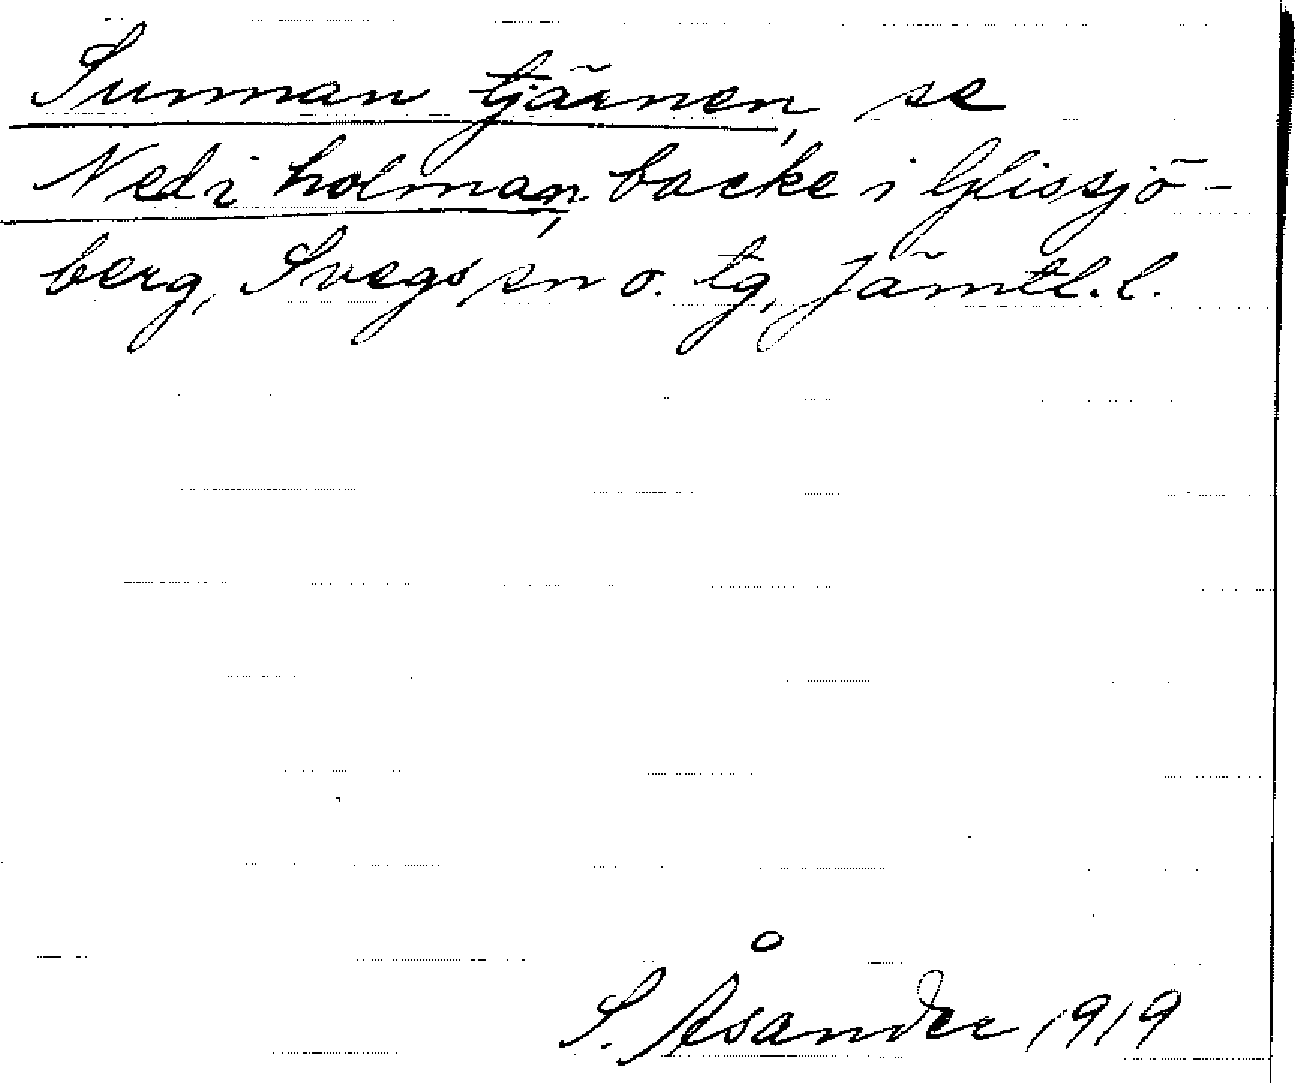 Sunnan tjärnen, se
Nedi holman, backe i Glissjö-
berg, Svegs sn o. tg, Jämtl. l.
S. Åsander 1919